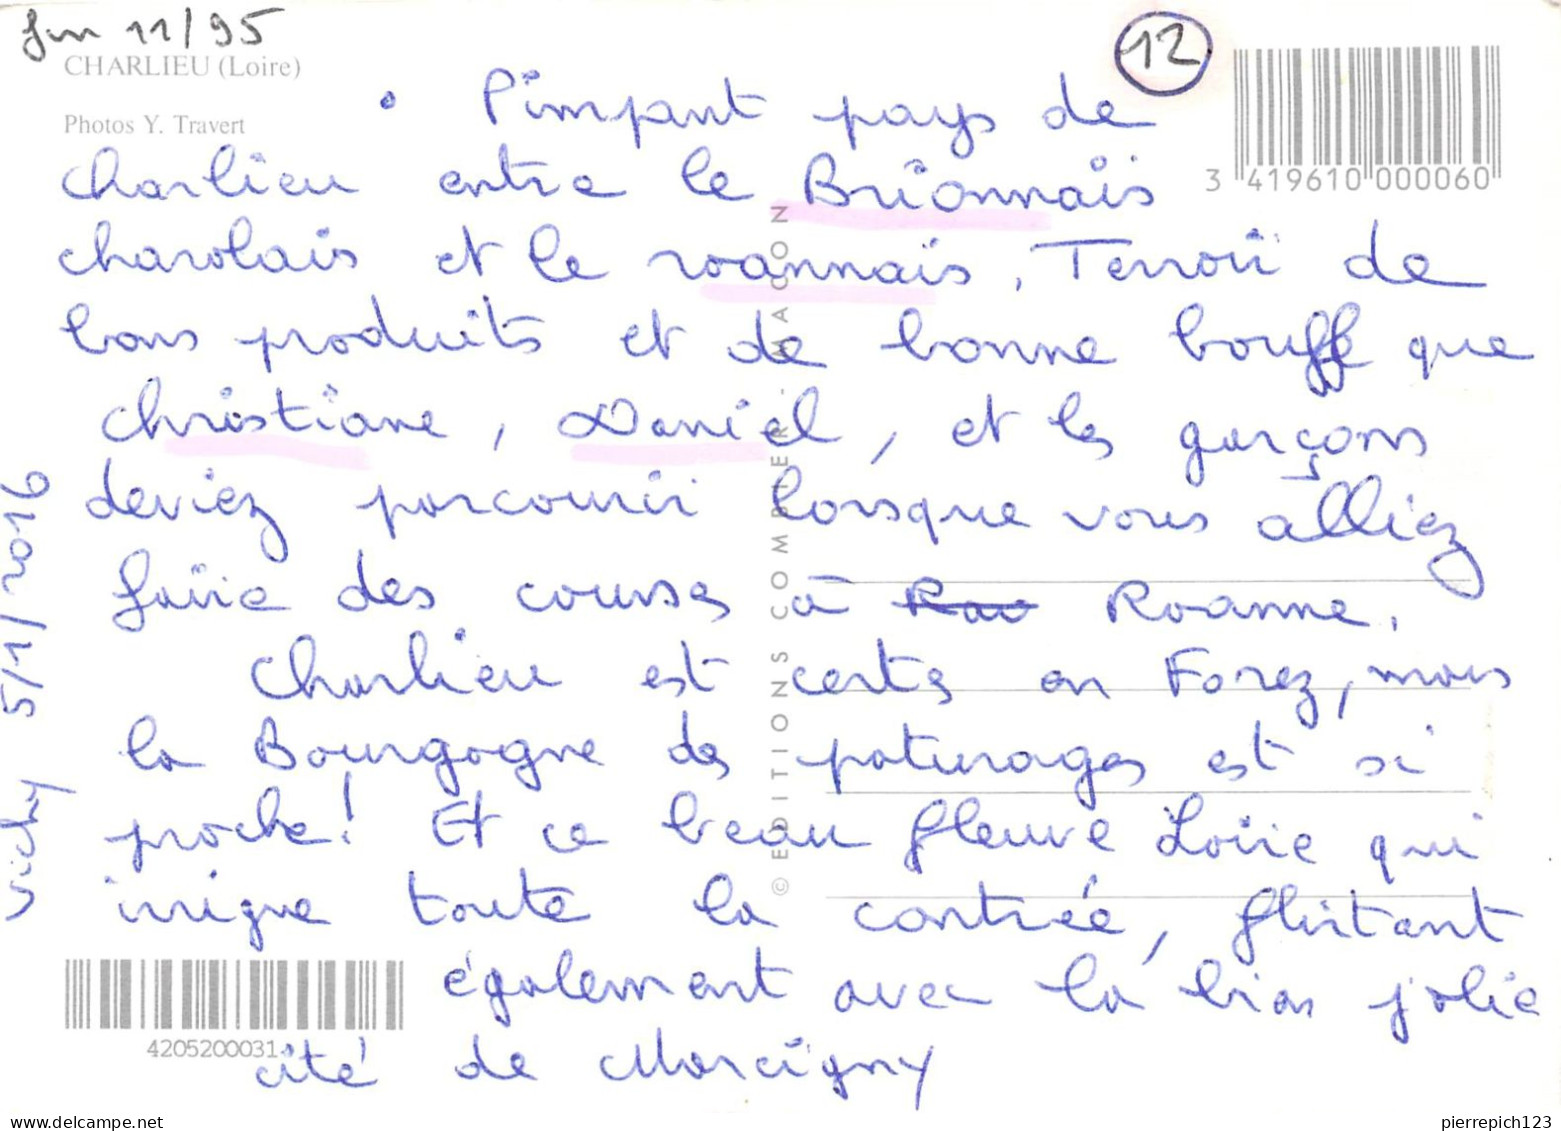 fin 11/95
12
CHARLIEU (Loire)
Photos Y. Travert
3 419610 000060
• Pimpant pays de
Charlieu entre le Brionnais
charolais et le roannais, Terroir de
bons produits et de bonne bouffe que
Christiane, Daniel, et les garçons
deviez parcourir lorsque vous alliez
faire des courses à Roanne.
Charlieu est certes en Forez, mais
la Bourgogne des paturages est si
proche! Et ce beau fleuve Loire qui
irrigue toute la contrée, flirtant
également avec la bien jolie
cité de Marcigny
Vichy 5/1/2016
© EDITIONS COMBIER MACON
4205200031
www.delcampe.net
pierrepich123